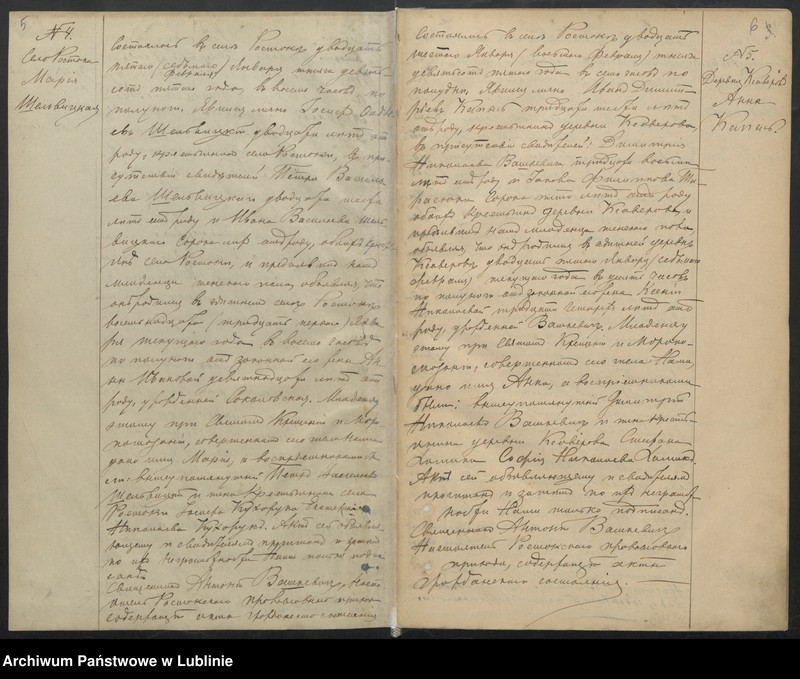 5
№ 4.
Село Ростока
Марія
Шельвицкая
Состоялось въ селѣ Ростокѣ двадцать
пятаго /седьмаго Февраля/ Января тысяча девять-
сотъ пятаго года, въ восемь часовъ по
полуночи. Явился лично Іосифъ
Шельвицкій, двадцати лѣтъ отъ
роду, крестьянинъ села Ростоки, въ при-
сутствіи свидѣтелей: Петра Василь-
ева Шельвицкаго двадцати шести
лѣтъ отъ роду и Ивана Васильева Шель-
вицкаго сорока лѣтъ отъ роду, обоихъ крестьянъ
села Ростоки, и предъявилъ намъ
младенца женскаго пола, объявляя, что
онъ родился въ селѣ Ростокѣ
восемнадцатаго /тридцать перваго/ Янва-
ря текущаго года въ восемь часовъ
по полуночи отъ законной его жены Ан-
ны девятнадцати лѣтъ отъ
роду, урожденной Соколовская. Младенцу
этому при Святомъ Крещеніи и Мѵро-
помазаніи, совершенномъ сего числа Нами
дано имя Марія, а воспріемниками бы-
ли: вышеупомянутый Петръ Васильевъ
Шельвицкій и жена крестьянина села
Ростоки
Николаева Кухарукъ. Актъ сей объявля-
ющему и свидѣтелямъ прочитанъ и затѣмъ
по ихъ неграмотности Нами только подпи-
санъ.
Священникъ Антонъ Вашкевичъ, Насто-
ятель Ростокскаго православнаго прихода
содержащій акты гражданскаго состоянія
6
№ 5.
Деревня
Анна
Состоялось въ селѣ Ростокѣ двадцать
шестаго Января /восьмаго Февраля/ тысяча
девятьсотъ пятаго года въ семь часовъ по
полудни. Явился лично Иванъ Димит-
ріевъ тридцати шести лѣтъ
отъ роду, крестьянинъ деревни
въ присутствіи свидѣтелей: Димитрія
Николаева Вашкевича тридцати восьми
лѣтъ отъ роду и Іакова Филиппова
сорока пяти лѣтъ отъ роду
обоихъ крестьянъ деревни и
предъявилъ намъ младенца женскаго пола
объявляя, что онъ родился въ деревнѣ
двадцать пятаго Января /седьмаго
Февраля/ текущаго года въ десять часовъ
по полуночи отъ законной его жены Ксеніи
Николаевой тридцати четырехъ лѣтъ отъ
роду, урожденной Вашкевичъ. Младенцу
этому при Святомъ Крещеніи и Мѵропо-
мазаніи, совершенномъ сего числа Нами,
дано имя Анна, а воспріемниками
были: вышеупомянутый Димитрій
Николаевъ Вашкевичъ и жена кресть-
янина деревни Стефана
Софія Николаева
Актъ сей объявляющему и свидѣтелямъ
прочитанъ и затѣмъ по ихъ неграмот-
ности Нами только подписанъ.
Священникъ Антонъ Вашкевичъ
Настоятель Ростокскаго православнаго
прихода, содержащій акты
гражданскаго состоянія.
Archiwum Państwowe w Lublinie